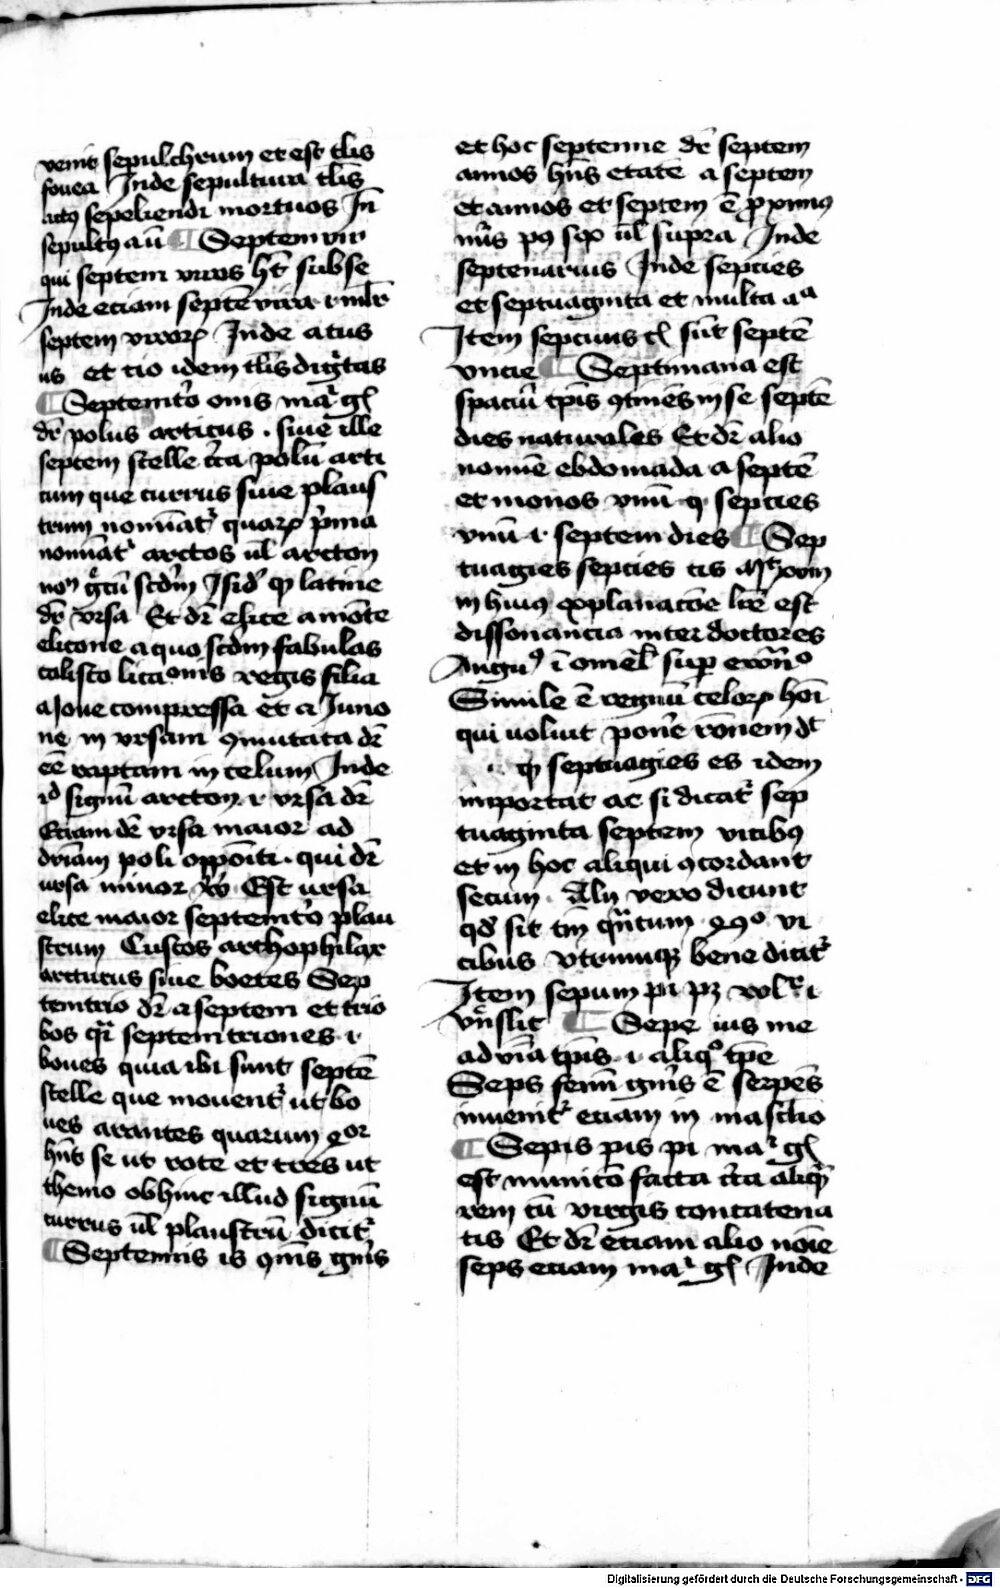 venit sepulchrum et est tlis
fouea Inde sepultura tlis
actꝰ sepeliendi mortuos In
sepultꝰ aū ¶ Septem vir
qui septem viros hт̄ sub se
Inde eciam septē vira
septem vixorꝝ Inde atus
us et tio idem tlis dignitas
¶ Septemtͦo onis ma. gl
dr̄ polus articus . siue ille
septem stelle circa polū arti
cum que currus siue plaus
trum nomīatʳ quarꝝ pͥma
nomīatʳ arctos ul̄ arcton
scdm Isid' ꝙ latine
dr̄ vrsa Et dr̄ elice a mōte
elicone a quo scdm fabulas
calisto licaonis regis filia
a Joue compressa et a Juno
ne in vrsam ꝯmutata dr̄
eē raptam in celum Inde
id signū arcton .i. vrsa dr̄
Eciam dr̄ vrsa maior ad
driam poli oppoīti . qui dr̄
ursa minor Est ursa
elice maior septemtͦo plau
strum Custos arthophilax
arcturus siue boetes Sep
temtrio dr̄ a septem et trio
bos qr̄ septem triones .i.
boues quia ibi sunt septē
stelle que mouentʳ ut bo
ues arantes quarum qor
hn̄t se ut rote et tres ut
themo ob hinc illud signū
currus ul̄ plaustrū dicitʳ
¶ Septennis is ꝯmis gnīs
et hoc septenne dr̄ septem
annos hn̄s etatē a septem
et annos et septem ē ꝓximus
nūs supra Inde
septenarius Inde septies
et septuaginta et multa aa
Item septiuns sūt septē
vncie ¶ Septimana est
spaciū tp̄is ꝯtinēs in se septē
dies naturales Et dr̄ alio
nomīe ebdomada a septē
et monos vnū ꝙ septies
vnū .i. septem dies ¶ Sep
tuagies septies tis Mt xviii
in huiꝰ explanacōe lr̄e est
dissonancia inter doctores
Auguꝰ ī omel' sup
Simile ē regnū celorꝝ hoī
qui uoluit ponē rōnem dt
ꝙ septuagies es idem
importat ac si dicatʳ sep
tuaginta septem vicibꝰ
et in hoc aliqui ꝯcordant
secum . Alij vero dicunt
qd̄ sit tm̄ 490 vi
cibus vtrumqꝫ bene dicitʳ
Item sepum pi
¶ Sepe ius me
ad vīa tp̄is .i. aliqͦ tp̄e
Seps femī gnīs ē serpēs
inuenitʳ eciam in masclīo
¶ Sepis pis pi ma. gl
est munitō facta circa aliqͣ
rem cū virgis concatena
tis Et dr̄ eciam alio noīe
seps eciam ma. gl Inde
Digitalisierung gefördert durch die Deutsche Forschungsgemeinschaft - DFG